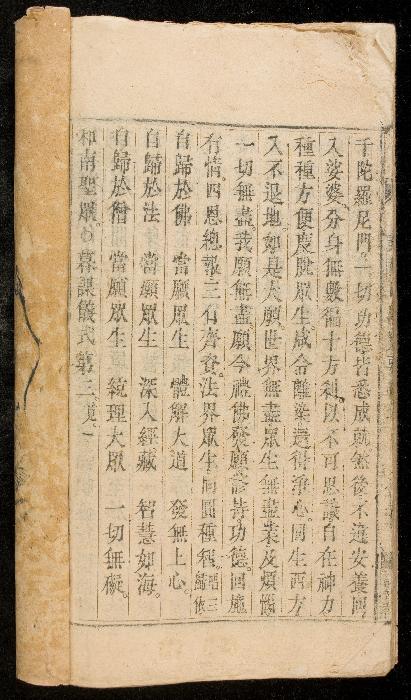 于陀羅尼門。一切功德皆悉成就然後不違安養回
入娑婆。分身無數徧十方剎。以不可思議自在神力
種種方便度脫眾生咸令離染還得淨心。同生西方
入不退地。如是大願世界無盡眾生無盡業及煩惱
一切無盡。我願無盡願今禮佛發願修持功德。回施
有情。四恩總報三有齊資。法界眾生同圓種智。唱三歸依
自歸於佛 當願眾生 體解大道 發無上心。
自歸於法 當願眾生 深入經藏 智慧如海。
自歸於僧 當願眾生 統理大眾 一切無礙。
和南聖眾。 暮課儀式第三